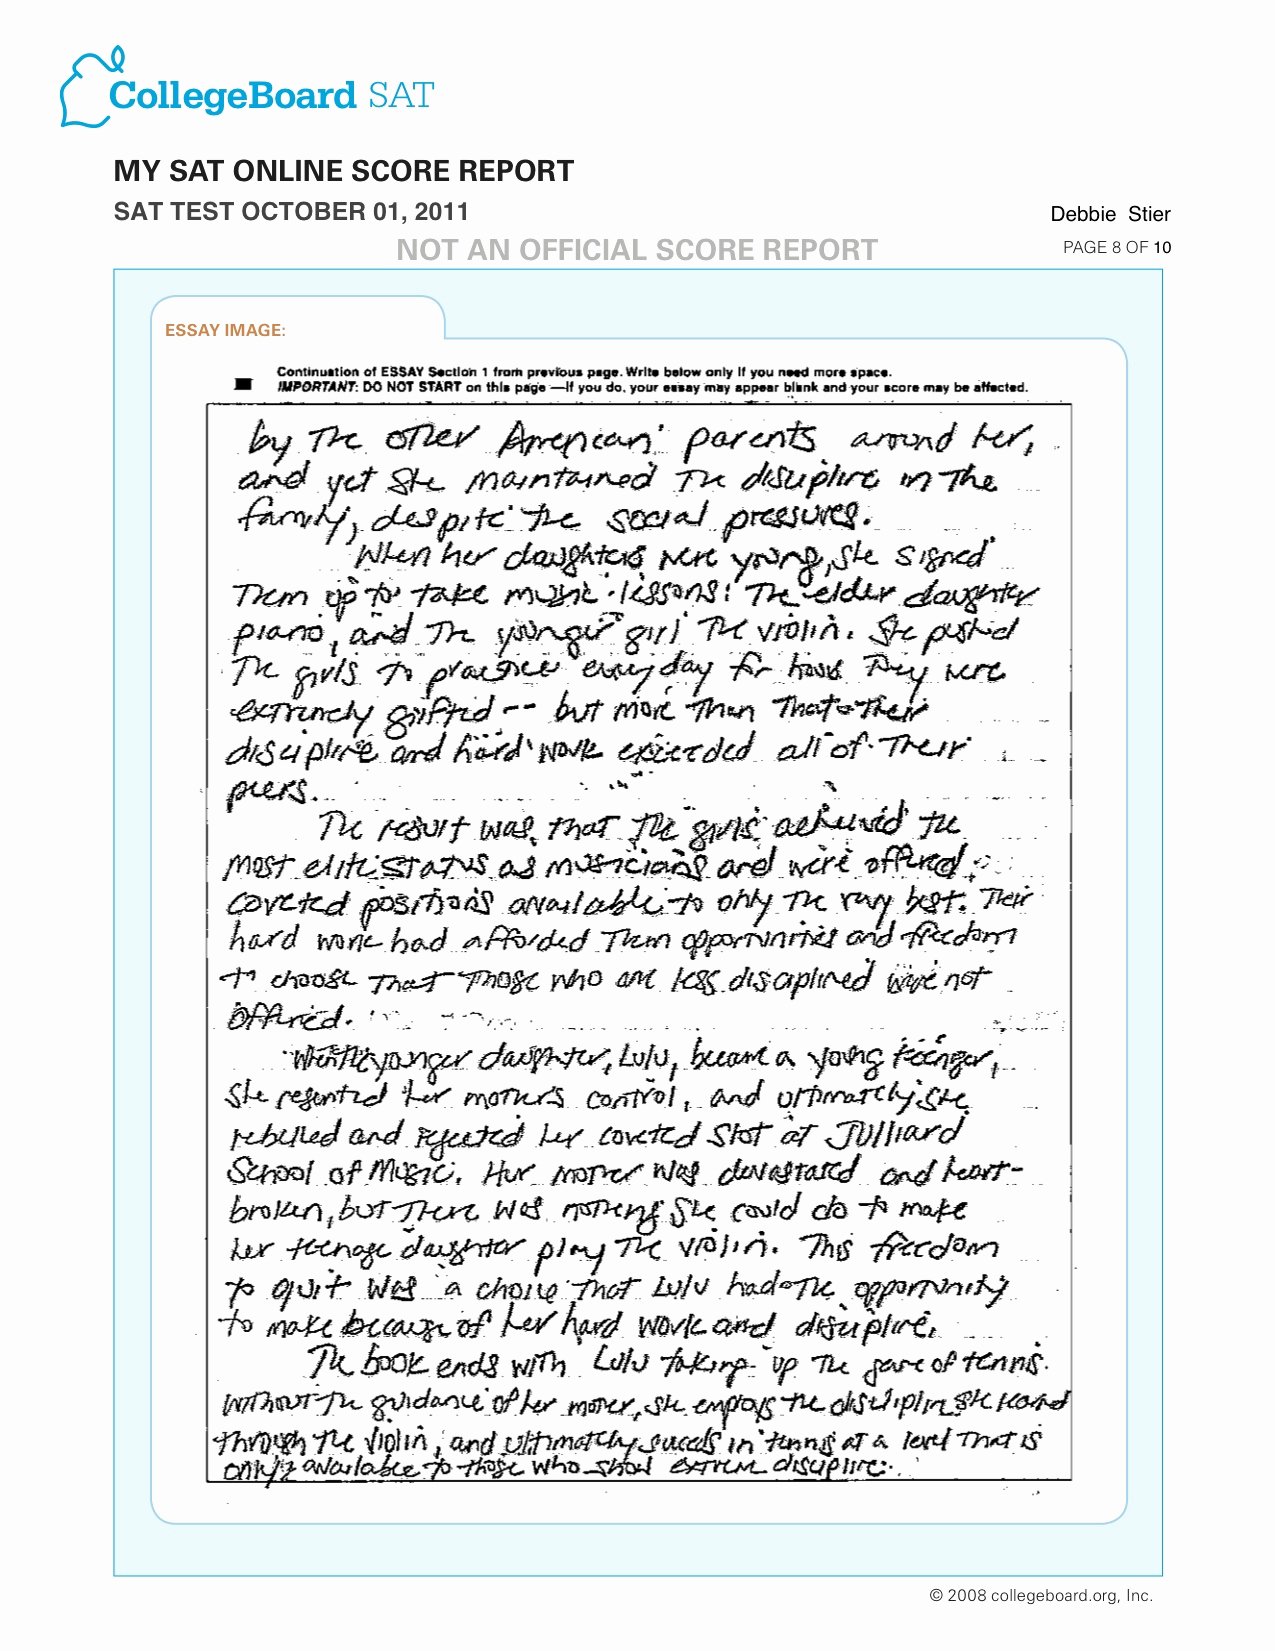 CollegeBoard SAT
MY SAT ONLINE SCORE REPORT
SAT TEST OCTOBER 01, 2011
Debbie Stier
NOT AN OFFICIAL SCORE REPORT
PAGE 8 OF 10
ESSAY IMAGE:
Continuation of ESSAY Section 1 from previous page. Write below only if you need more space.
IMPORTANT: DO NOT START on this page —if you do, your essay may appear blank and your score may be affected.
by the other American parents around her,
and yet she maintained the discipline in the
family, despite the social pressures.
When her daughters were young, she signed
them up to take music lessons: The elder daughter
piano, and the younger girl the violin. She pushed
the girls to practice every day for hours. They were
extremely gifted -- but more than that - their
discipline and hard work exceeded all of their
peers.
The result was that the girls achieved the
most elite status as musicians and were offered
coveted positions available to only the very best. Their
hard work had afforded them opportunities and freedom
to choose that those who are less disciplined were not
offered.
When the younger daughter, Lulu, became a young teenager,
she resented her mother's control, and ultimately she
rebelled and rejected her coveted slot at Julliard
School of Music. Her mother was devastated and heart-
broken, but there was nothing she could do to make
her teenage daughter play the violin. This freedom
to quit was a choice that Lulu had the opportunity
to make because of her hard work and discipline.
The book ends with Lulu taking up the game of tennis.
Without the guidance of her mother, she employs the discipline she learned
through the violin, and ultimately succeeds in tennis at a level that is
only available to those who show extreme discipline.
© 2008 collegeboard.org, Inc.